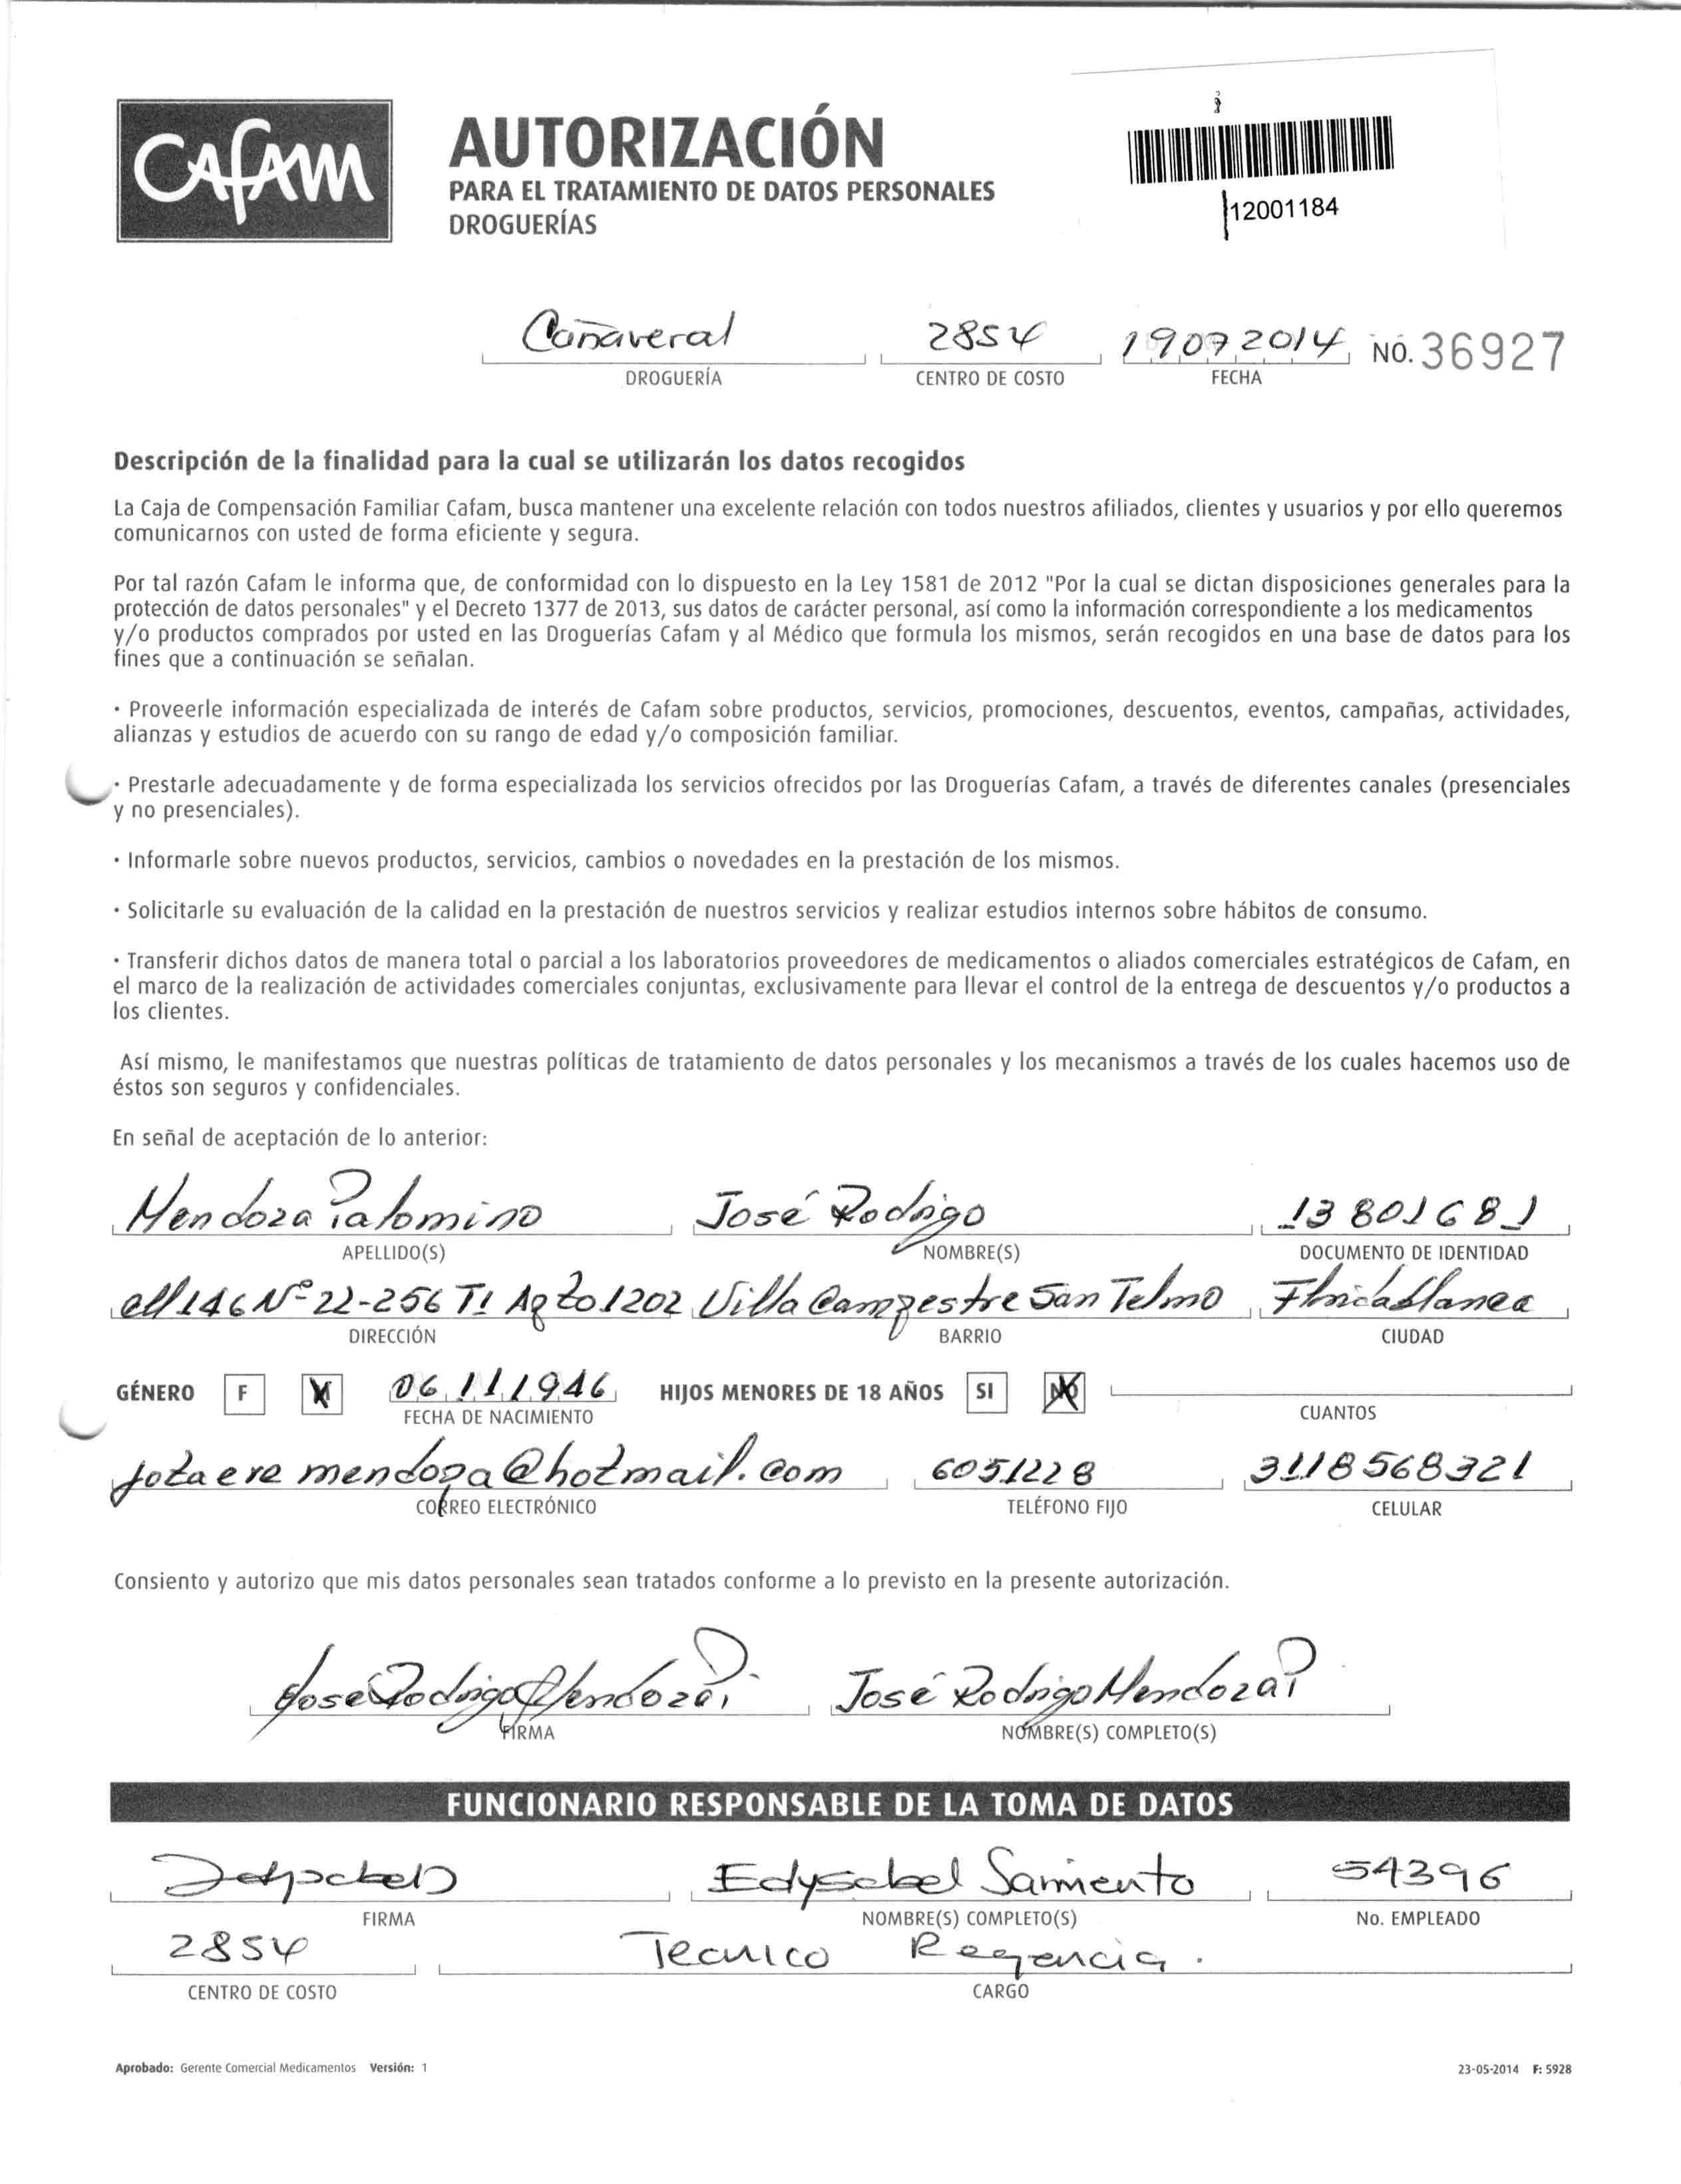 CAfAM
AUTORIZACIÓN
PARA EL TRATAMIENTO DE DATOS PERSONALES
DROGUERÍAS
12001184
Cañaveral 2854 19072014 NO. 36927
DROGUERÍA CENTRO DE COSTO FECHA
Descripción de la finalidad para la cual se utilizarán los datos recogidos
La Caja de Compensación Familiar Cafam, busca mantener una excelente relación con todos nuestros afiliados, clientes y usuarios y por ello queremos
comunicarnos con usted de forma eficiente y segura.
Por tal razón Cafam le informa que, de conformidad con lo dispuesto en la Ley 1581 de 2012 "Por la cual se dictan disposiciones generales para la
protección de datos personales" y el Decreto 1377 de 2013, sus datos de carácter personal, así como la información correspondiente a los medicamentos
y/o productos comprados por usted en las Droguerías Cafam y al Médico que formula los mismos, serán recogidos en una base de datos para los
fines que a continuación se señalan.
· Proveerle información especializada de interés de Cafam sobre productos, servicios, promociones, descuentos, eventos, campañas, actividades,
alianzas y estudios de acuerdo con su rango de edad y/o composición familiar.
· Prestarle adecuadamente y de forma especializada los servicios ofrecidos por las Droguerías Cafam, a través de diferentes canales (presenciales
y no presenciales).
· Informarle sobre nuevos productos, servicios, cambios o novedades en la prestación de los mismos.
· Solicitarle su evaluación de la calidad en la prestación de nuestros servicios y realizar estudios internos sobre hábitos de consumo.
· Transferir dichos datos de manera total o parcial a los laboratorios proveedores de medicamentos o aliados comerciales estratégicos de Cafam, en
el marco de la realización de actividades comerciales conjuntas, exclusivamente para llevar el control de la entrega de descuentos y/o productos a
los clientes.
Así mismo, le manifestamos que nuestras políticas de tratamiento de datos personales y los mecanismos a través de los cuales hacemos uso de
éstos son seguros y confidenciales.
En señal de aceptación de lo anterior:
Mendoza Palomino José Rodrigo 13801681
APELLIDO(S) NOMBRE(S) DOCUMENTO DE IDENTIDAD
cll 146 Nº 22-256 T1 Apto 1202 Villa Campestre San Telmo Floridablanca
DIRECCIÓN BARRIO CIUDAD
GÉNERO F M 06 11 1946 HIJOS MENORES DE 18 AÑOS SI NO
FECHA DE NACIMIENTO CUANTOS
jotaere mendoza@hotmail.com 6051228 3118568321
CORREO ELECTRÓNICO TELÉFONO FIJO CELULAR
Consiento y autorizo que mis datos personales sean tratados conforme a lo previsto en la presente autorización.
José Rodrigo Mendoza P. José Rodrigo Mendoza P
FIRMA NOMBRE(S) COMPLETO(S)
FUNCIONARIO RESPONSABLE DE LA TOMA DE DATOS
Edysabel Sarmiento 54396
FIRMA NOMBRE(S) COMPLETO(S) No. EMPLEADO
2854 Tecnico Regencia.
CENTRO DE COSTO CARGO
Aprobado: Gerente Comercial Medicamentos Versión: 1 23-05-2014 F: 5928